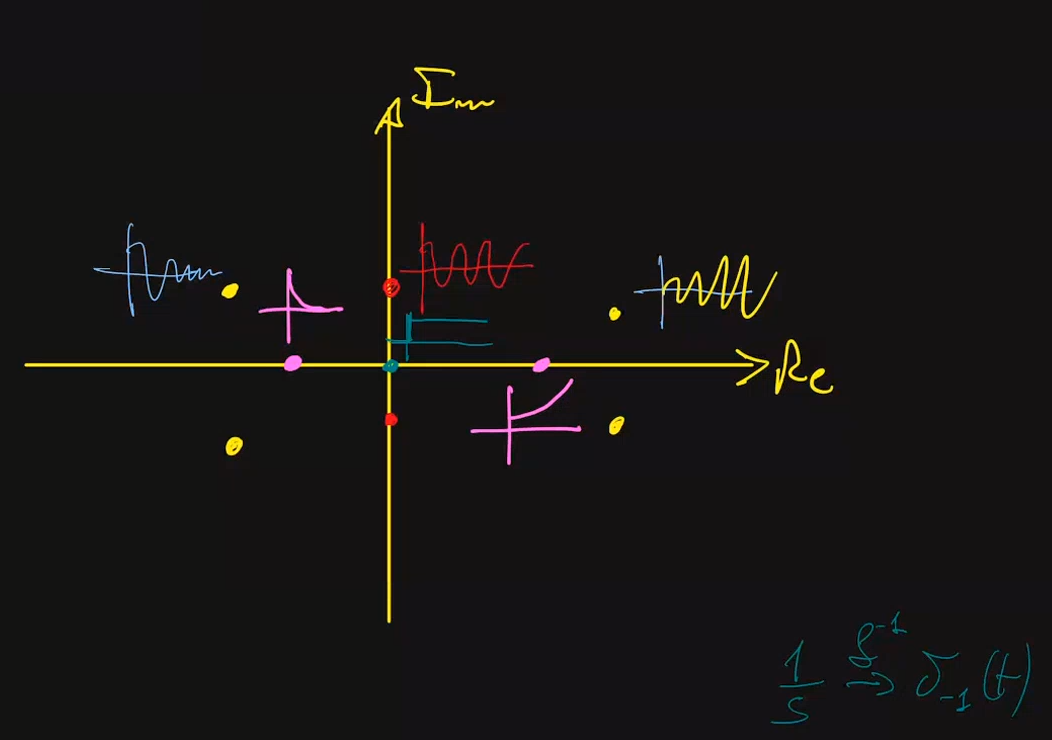 Im
Re
1/s ℒ⁻¹→ δ₋₁(t)